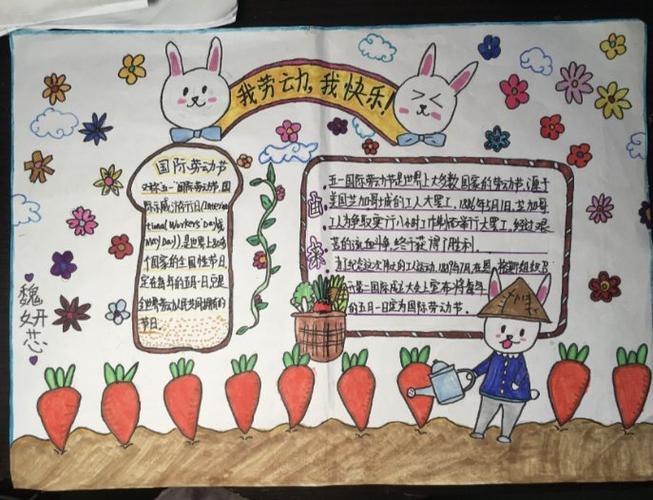 我劳动,我快乐!
国际劳动节
又称五一国际劳动节,国
际示威游行日(Interna
tional Workers' Day或
May Day)),是世界上80多
个国家的全国性节日。
定在每年的五月一日。它是
全世界劳动人民共同拥有的
节日。
由
来
五一国际劳动节是世界上大多数国家的劳动节。源于
美国芝加哥城的工人大罢工,1886年5月1日,芝加哥
工人为争取实行八小时工作制而举行大罢工,经过艰
苦的流血斗争,终于获得了胜利。
为纪念这次伟大的工人运动,1889年7月,在恩格斯组织召
第二国际成立大会上宣布将每年
的五月一日定为国际劳动节。
魏
妍
芯